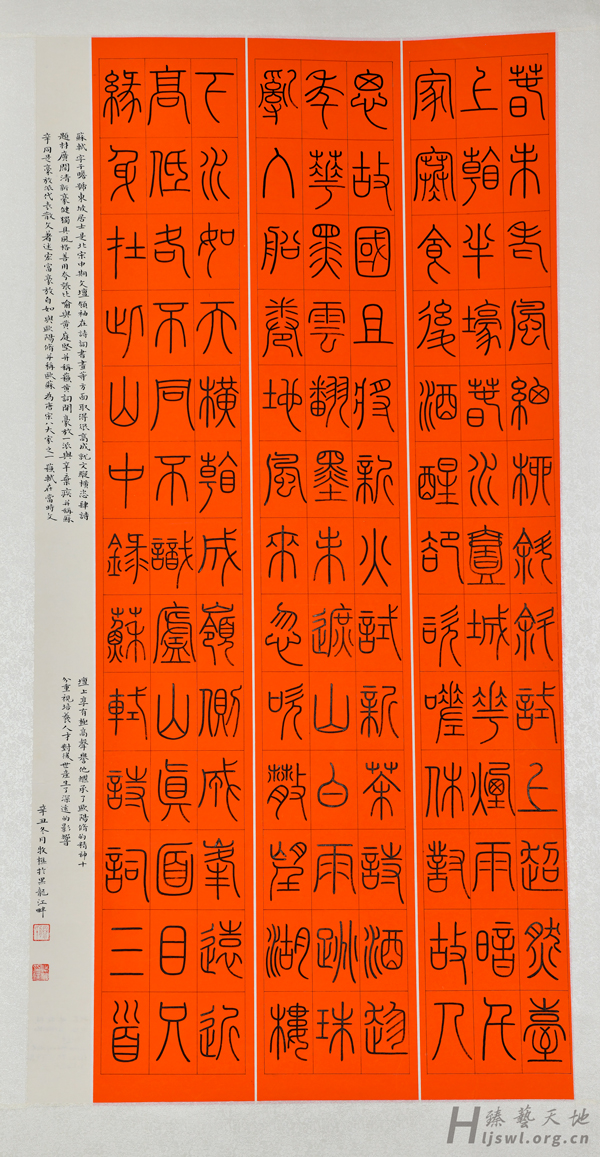 春未老風細柳斜斜試上超然臺
上看半壕春水壹城花煙雨暗千
家寒食後酒醒卻咨嗟休對故人
思故國且將新火試新茶詩酒趁
年華黑雲翻墨未遮山白雨跳珠
亂入船卷地風來忽吹散望湖樓
下水如天橫看成嶺側成峯遠近
高低各不同不識廬山真面目只
緣身在此山中錄蘇軾詩詞三首
蘇軾字子瞻號東坡居士是北宋中期文壇領袖在詩詞書畫等方面取得很高成就文縱橫恣肆詩
題材廣闊清新豪健獨具風格善用夸張比喻與黃庭堅并稱蘇黃詞開豪放一派與辛棄疾并稱蘇
辛同是豪放派代表散文著述宏富豪放自如與歐陽脩并稱歐蘇為唐宋八大家之一蘇軾在當時文
壇上享有極高聲譽他繼承了歐陽脩的精神十
分重視培養人才對後世產生了深遠的影響
辛丑冬月牧樵於黑龍江畔
臻藝天地
Hljswl.org.cn